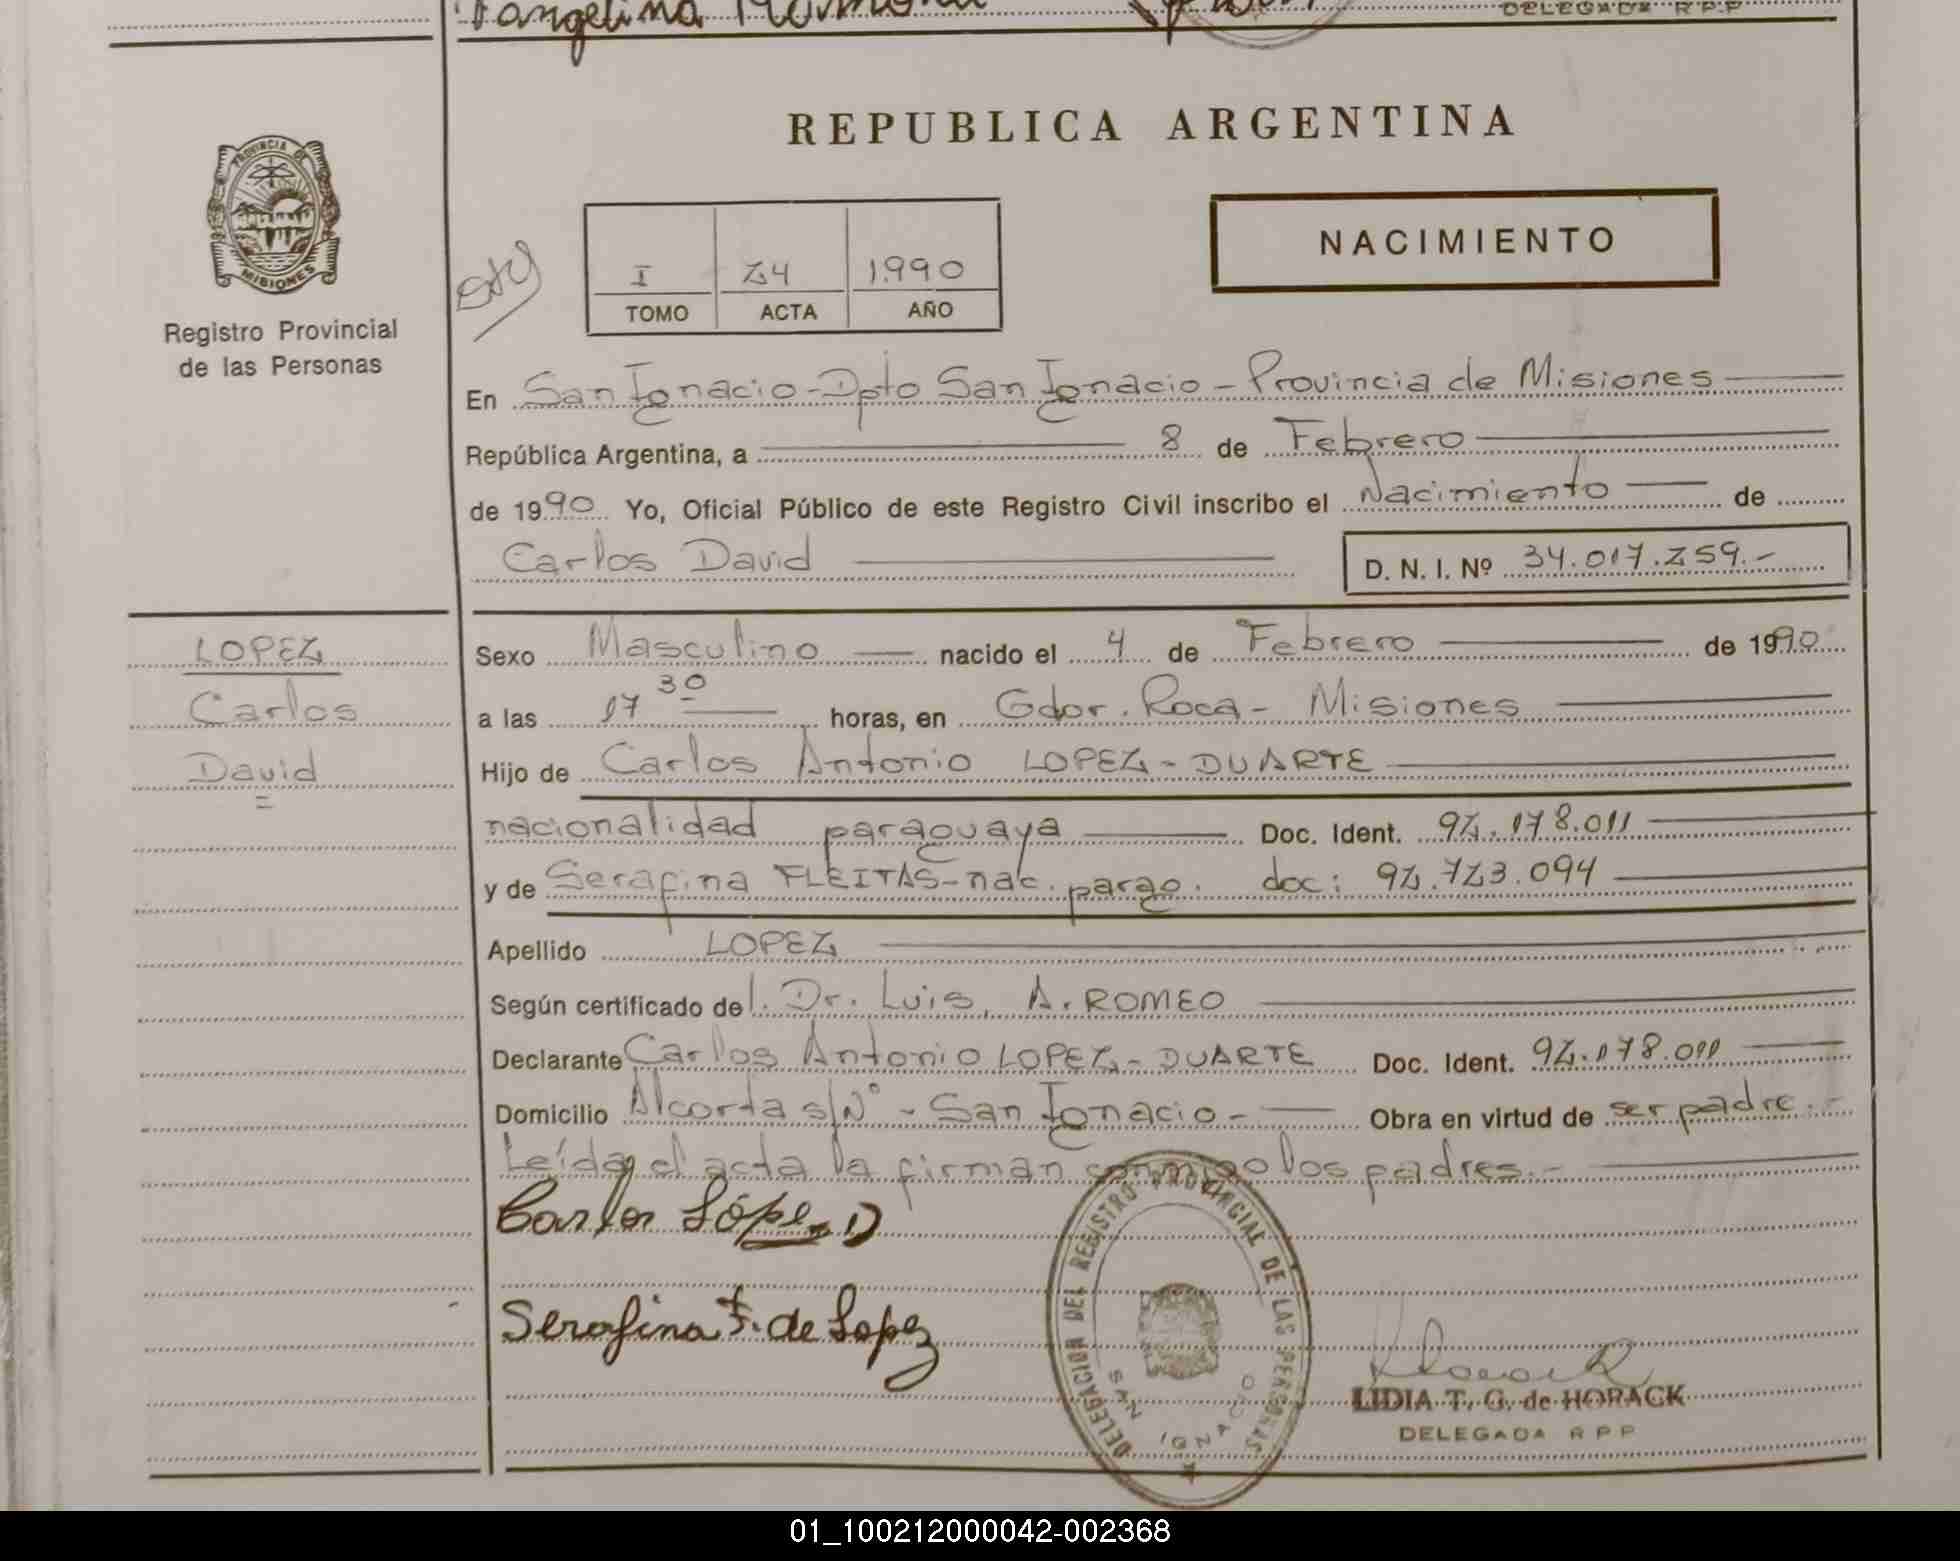 Vangelina
DELEGADA R P P
REPUBLICA ARGENTINA
PROVINCIA DE MISIONES
NACIMIENTO
I 24 1.990
TOMO ACTA AÑO
Registro Provincial
de las Personas
En San Ignacio - Dpto San Ignacio - Provincia de Misiones
República Argentina, a 8 de Febrero
de 1990 Yo, Oficial Público de este Registro Civil inscribo el Nacimiento de
Carlos David D. N. I. Nº 34.017.259.-
LOPEZ
Carlos
David
=
Sexo Masculino nacido el 4 de Febrero de 1990
a las 17 30 horas, en Gdor. Roca - Misiones
Hijo de Carlos Antonio LOPEZ - DUARTE
nacionalidad paraguaya Doc. Ident. 92.178.011
y de Serafina FLEITAS - nac. parag. doc: 92.723.094
Apellido LOPEZ
Según certificado del. Dr. Luis, A. ROMEO
Declarante Carlos Antonio LOPEZ - DUARTE Doc. Ident. 92.178.011
Domicilio Alcorta s/Nº - San Ignacio - Obra en virtud de ser padre.-
Leída el acta la firman conmigo los padres.-
Carlos López D
Serafina F. de Lopez
DELEGACION DEL REGISTRO PROVINCIAL DE LAS PERSONAS
SAN IGNACIO
Horack
LIDIA T. G. de HORACK
DELEGADA R P P
01_100212000042-002368